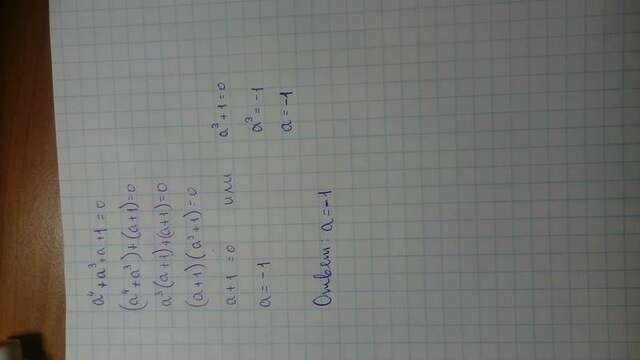 a⁴+a³+a+1=0
(a⁴+a³)+(a+1)=0
a³(a+1)+(a+1)=0
(a+1)(a³+1)=0
a+1=0 или a³+1=0
a=-1 a³=-1
a=-1
Ответ: a=-1